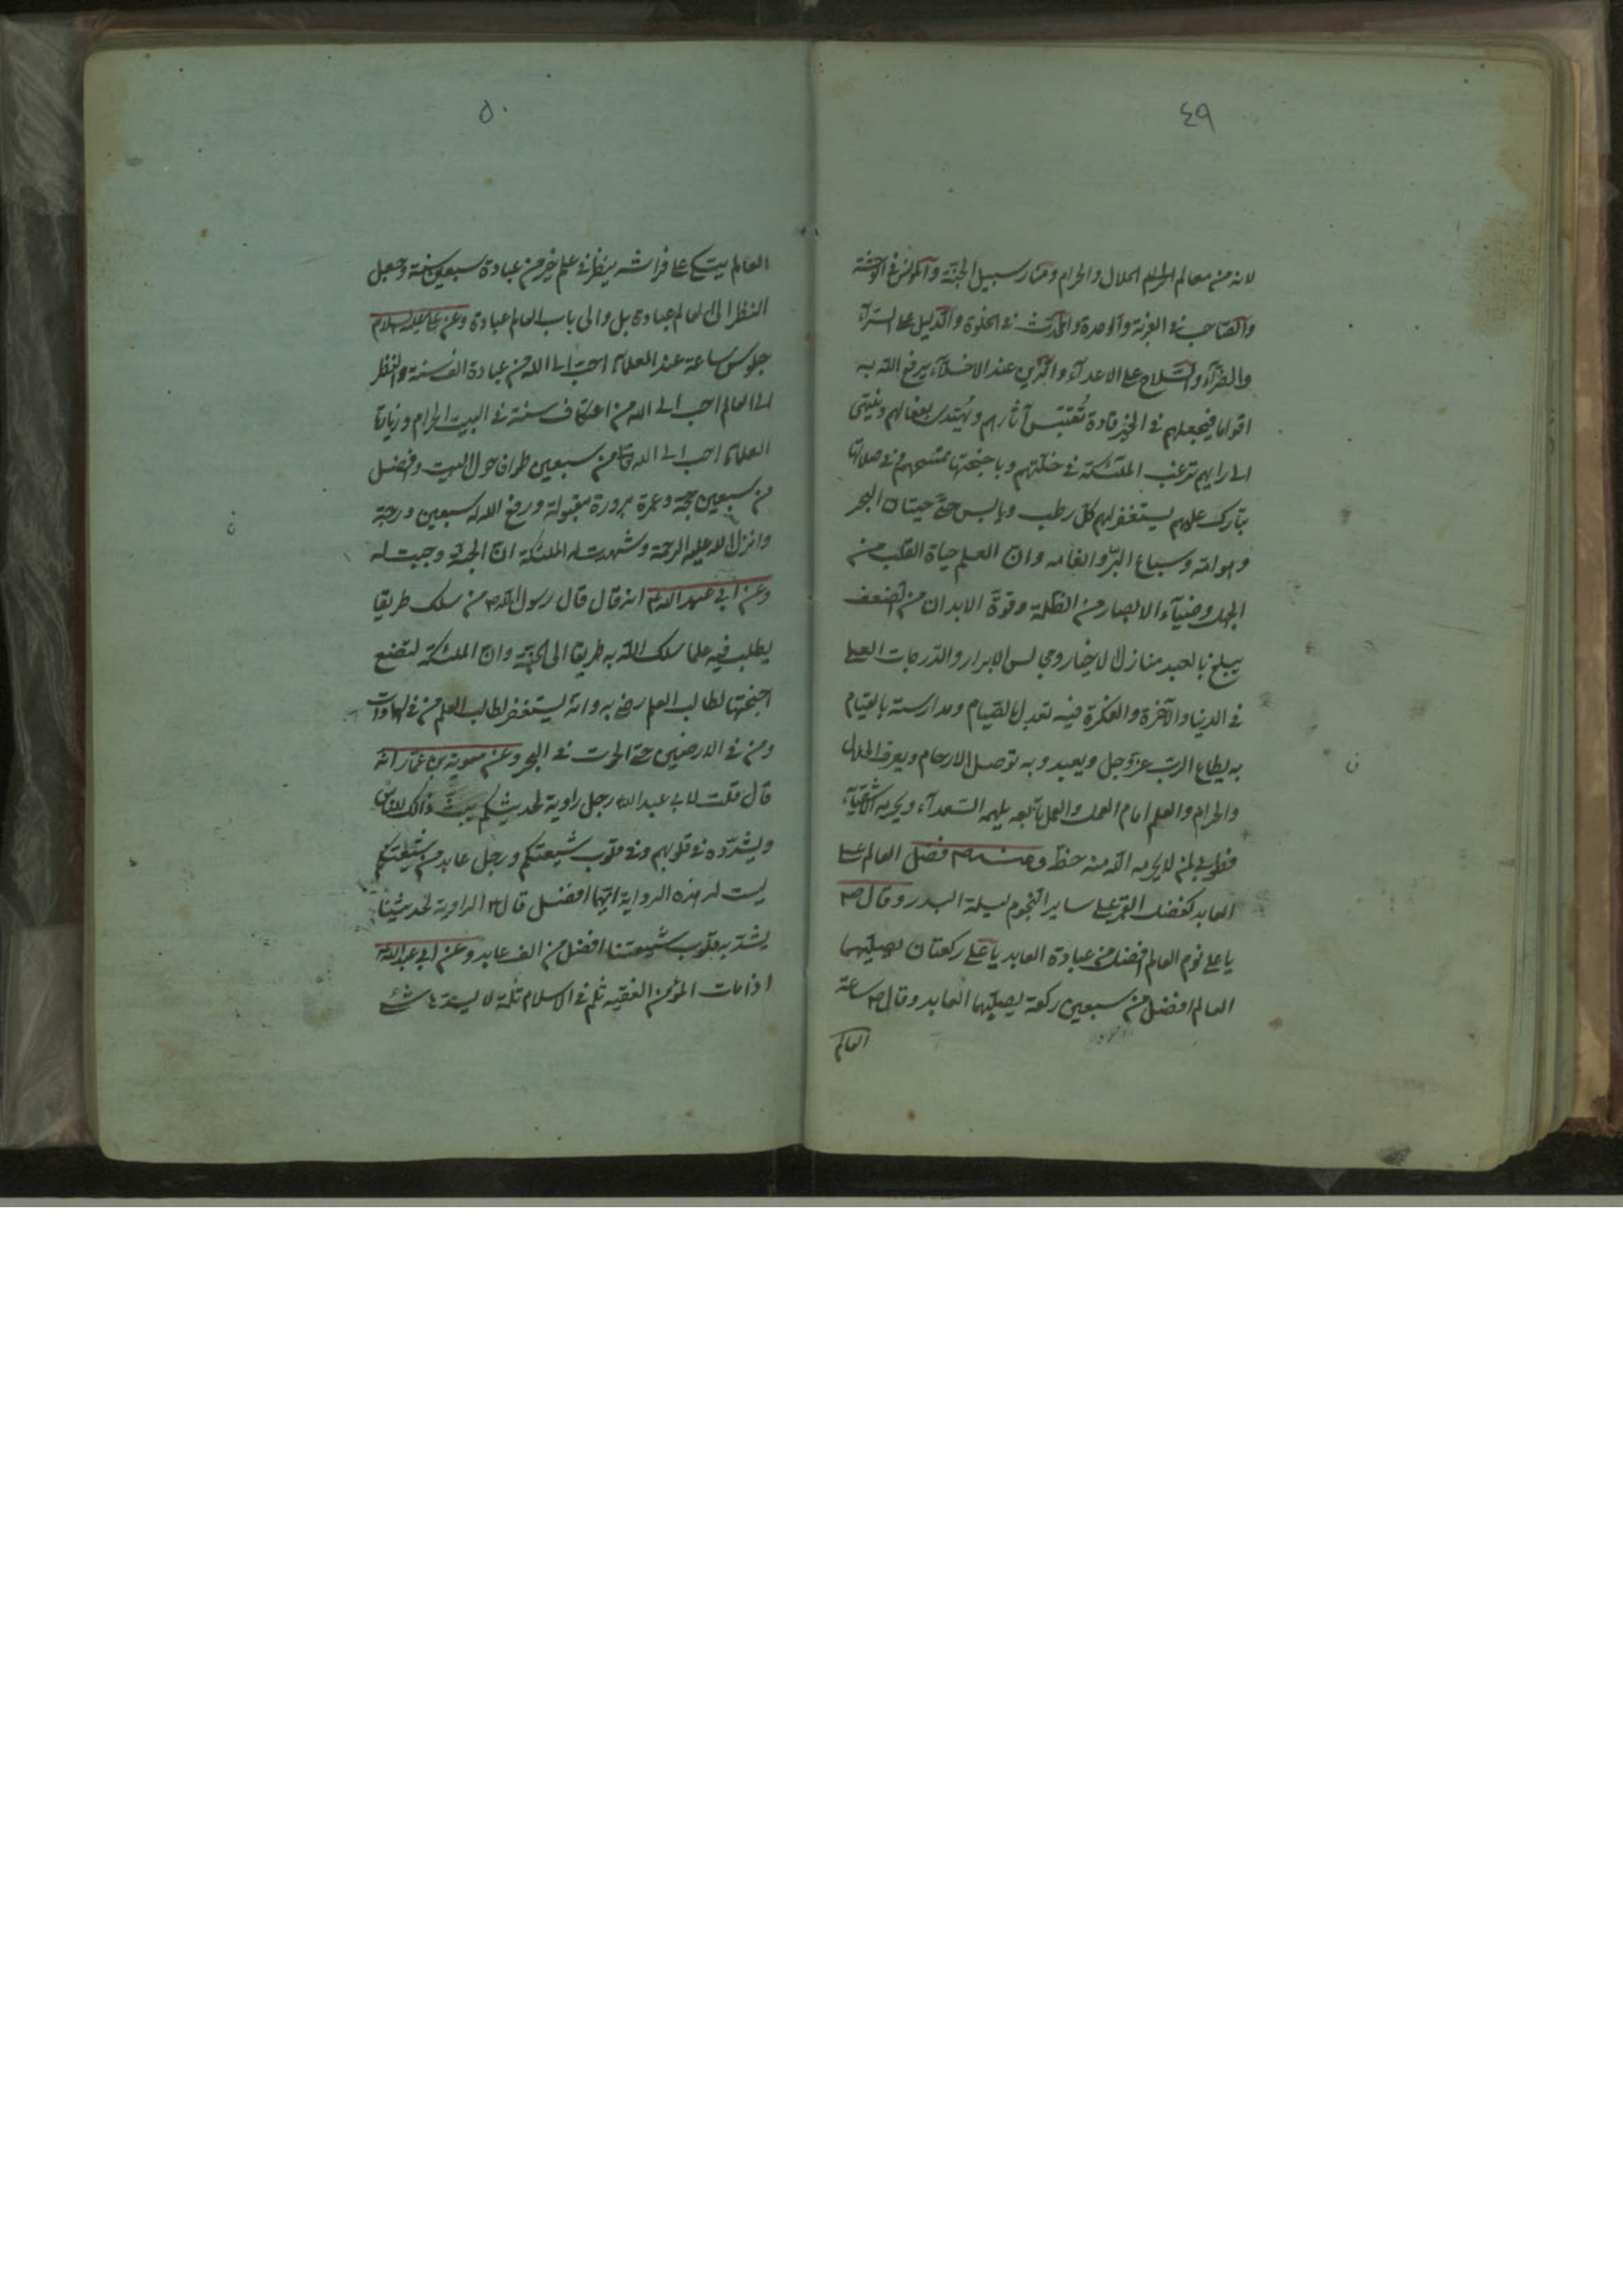 ٤٩
لانه من معالم الحلال والحرام ومنار سبيل الجنة والمونس في الوحشة
والصاحب في الغربة والوحدة والمحدث في الخلوة والدليل على السرآء
والضرآء والسلاح على الاعدآء والزين عند الاخلآء يرفع الله به
اقواما فيجعلهم في الخير قادة تقتبس آثارهم ويهتدى بفعالهم وينتهى
الى رايهم ترغب الملئكة في خلتهم وباجنحتها تمسحهم وفي صلاتها
تبارك عليهم يستغفر لهم كل رطب ويابس حتى حيتان البحر
وهوامه وسباع البر وانعامه وان العلم حياة القلب من
الجهل وضيآء الابصار من الظلمة وقوة الابدان من الضعف
يبلغ بالعبد منازل الاخيار ومجالس الابرار والدرجات العلى
في الدنيا والآخرة والفكرة فيه تعدل بالصيام ومدارسته بالقيام
به يطاع الرب عز وجل ويعبد وبه توصل الارحام ويعرف الحلال
والحرام والعلم امام العمل والعمل تابعه يلهمه السعدآء ويحرمه الاشقيآء
فطوبى لمن لا يحرمه الله منه حظه وعنه ص فضل العالم على
العابد كفضل القمر على ساير النجوم ليلة البدر وقال ص
يا على نوم العالم افضل من عبادة العابد يا على ركعتان يصليهما
العالم افضل من سبعين ركعة يصليها العابد وقال ص ساعة
العالم
٥٠
العالم يتكى على فراشه ينظر في علم خير من عبادة سبعين سنة وجعل
النظر الى العالم عبادة بل والى باب العالم عبادة وعن على عليه السلام
جلوس ساعة عند العلمآء احب الى الله من عبادة الف سنة والنظر
الى العالم احب الى الله من اعتكاف سنة في البيت الحرام وزيارة
العلمآء احب الى الله تعالى من سبعين طواف حول البيت وافضل
من سبعين حجة وعمرة مبرورة مقبولة ورفع الله له سبعين درجة
وانزل الله عليه الرحمة وشهدت له الملئكة ان الجنة وجبت له
وعن ابى عبد الله ع انه قال قال رسول الله ص من سلك طريقا
يطلب فيه علما سلك الله به طريقا الى الجنة وان الملئكة لتضع
اجنحتها لطالب العلم رضى به وانه يستغفر لطالب العلم من في السماوات
ومن في الارضين حتى الحوت في البحر وعن معوية بن عمار انه
قال قلت لابى عبد الله رجل راوية لحديثكم يبث ذالك للناس
ويشدده في قلوبهم وفي قلوب شيعتكم ورجل عابد من شيعتكم
ليست له هذه الرواية ايهما افضل قال ع الراوية لحديثنا
يشد به قلوب شيعتنا افضل من الف عابد وعن ابى عبد الله ع
اذا مات المؤمن الفقيه ثلم في الاسلام ثلمة لا يسدها شئ